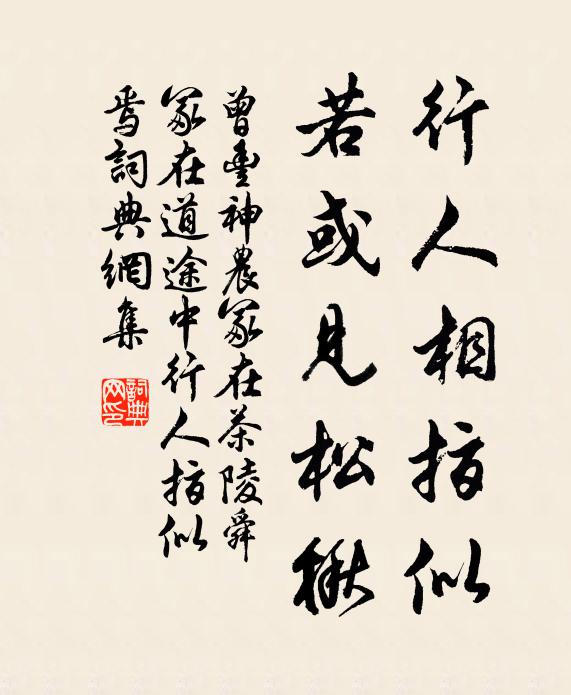 行人相指似
若或見松楸
曾豐神農冢在茶陵舜
冢在道途中行人指似
焉詞典網集
詞典网印